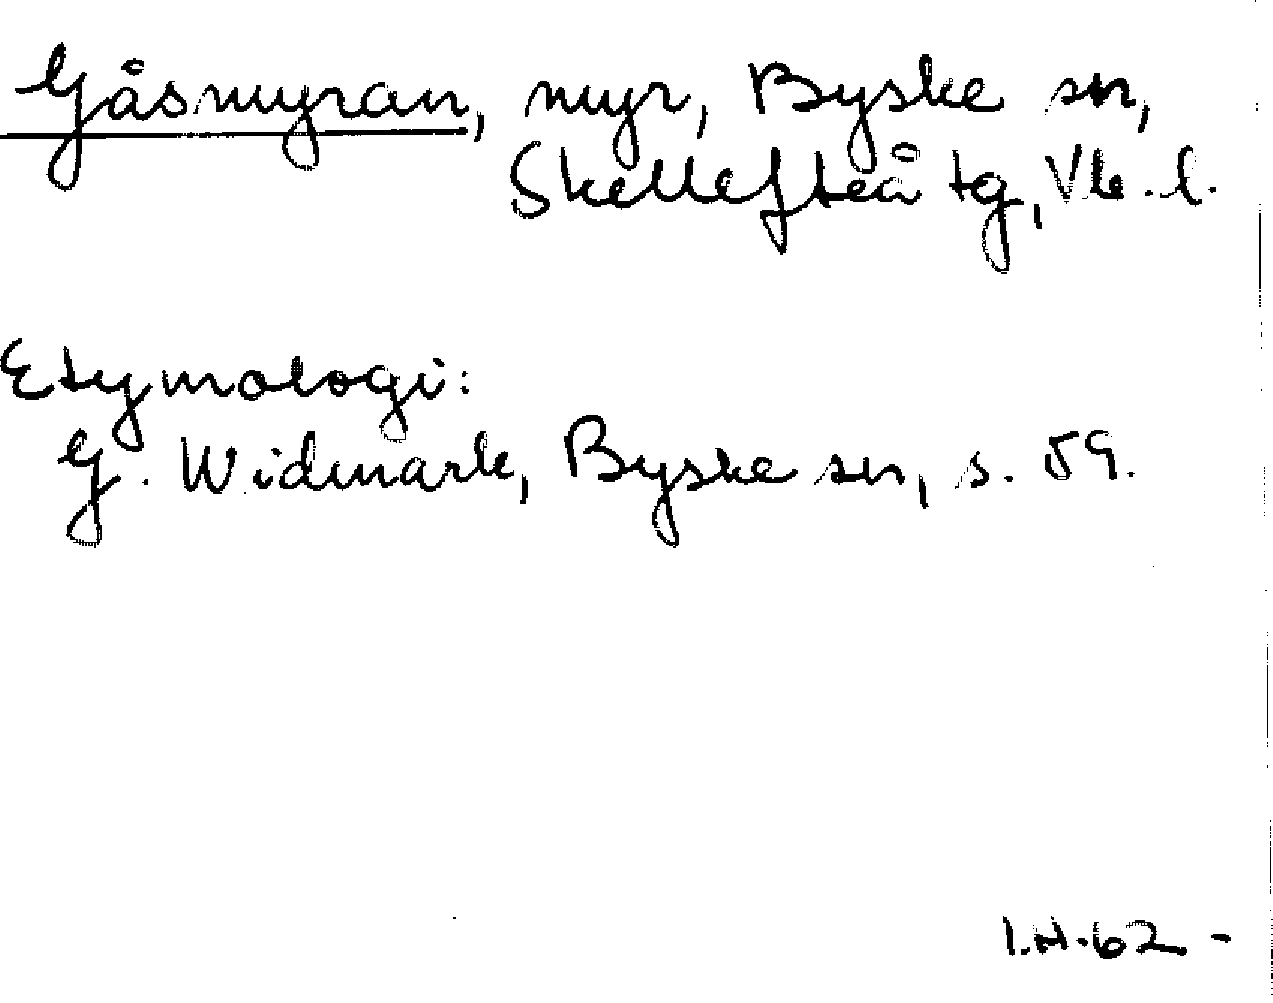 Gåsmyran, myr, Byske sn,
Skellefteå tg, Vb. l.
Etymologi:
G. Widmark, Byske sn, s. 59.
I.H.62 -